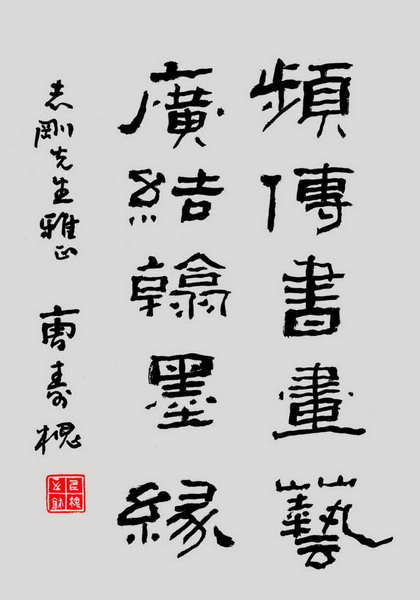 頻傳書畫藝
廣結翰墨緣
志剛先生雅正 曹寿槐